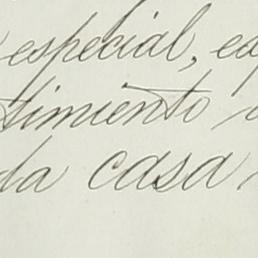 especial, es
timiento
da casa